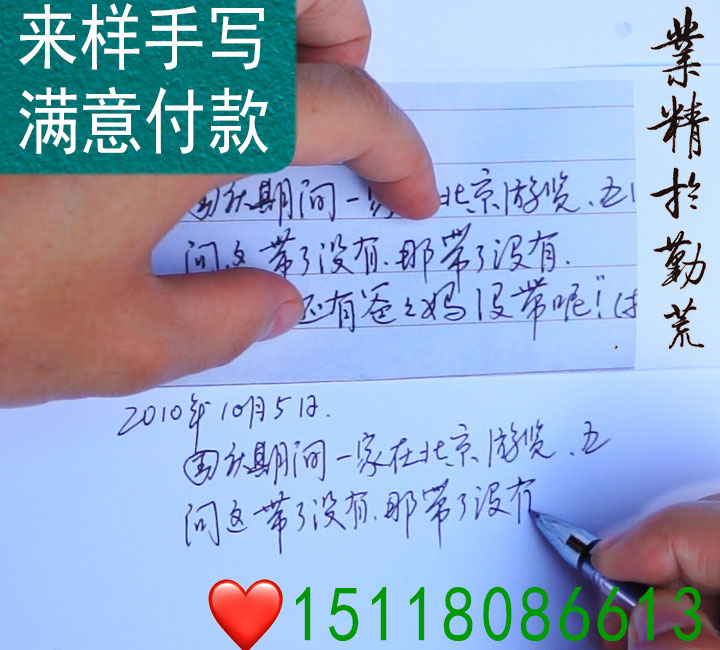 来样手写
满意付款
業精於勤荒
国庆期间一家 北京游览、五
问这带了没有、那带了没有.
还有爸爸妈没带呢!"(
2010年10月5日.
国庆期间一家在北京游览、五
问这带了没有、那带了没有
❤️15118086613